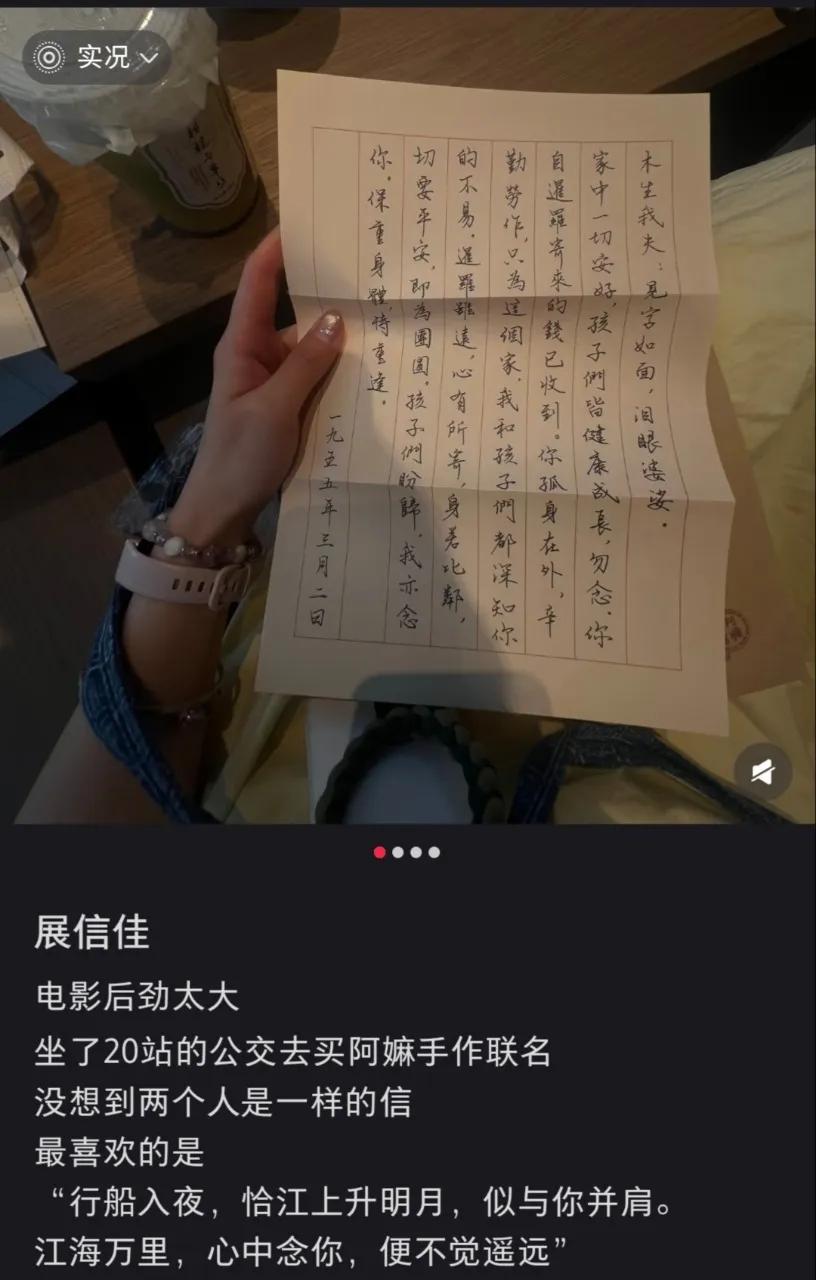 实况
木生我夫：見字如面，淚眼婆娑。
家中一切安好，孩子們皆健康成長，勿念。你
自暹羅寄來的錢已收到。你孤身在外，辛
勤勞作，只為這個家，我和孩子們都深知你
的不易。暹羅雖遠，心有所寄，身若比鄰，
切要平安，即為團圓。孩子們盼歸，我亦念
你。保重身體，待重逢。
一九五五年三月二日
展信佳
电影后劲太大
坐了20站的公交去买阿嫲手作联名
没想到两个人是一样的信
最喜欢的是
“行船入夜，恰江上升明月，似与你并肩。
江海万里，心中念你，便不觉遥远”